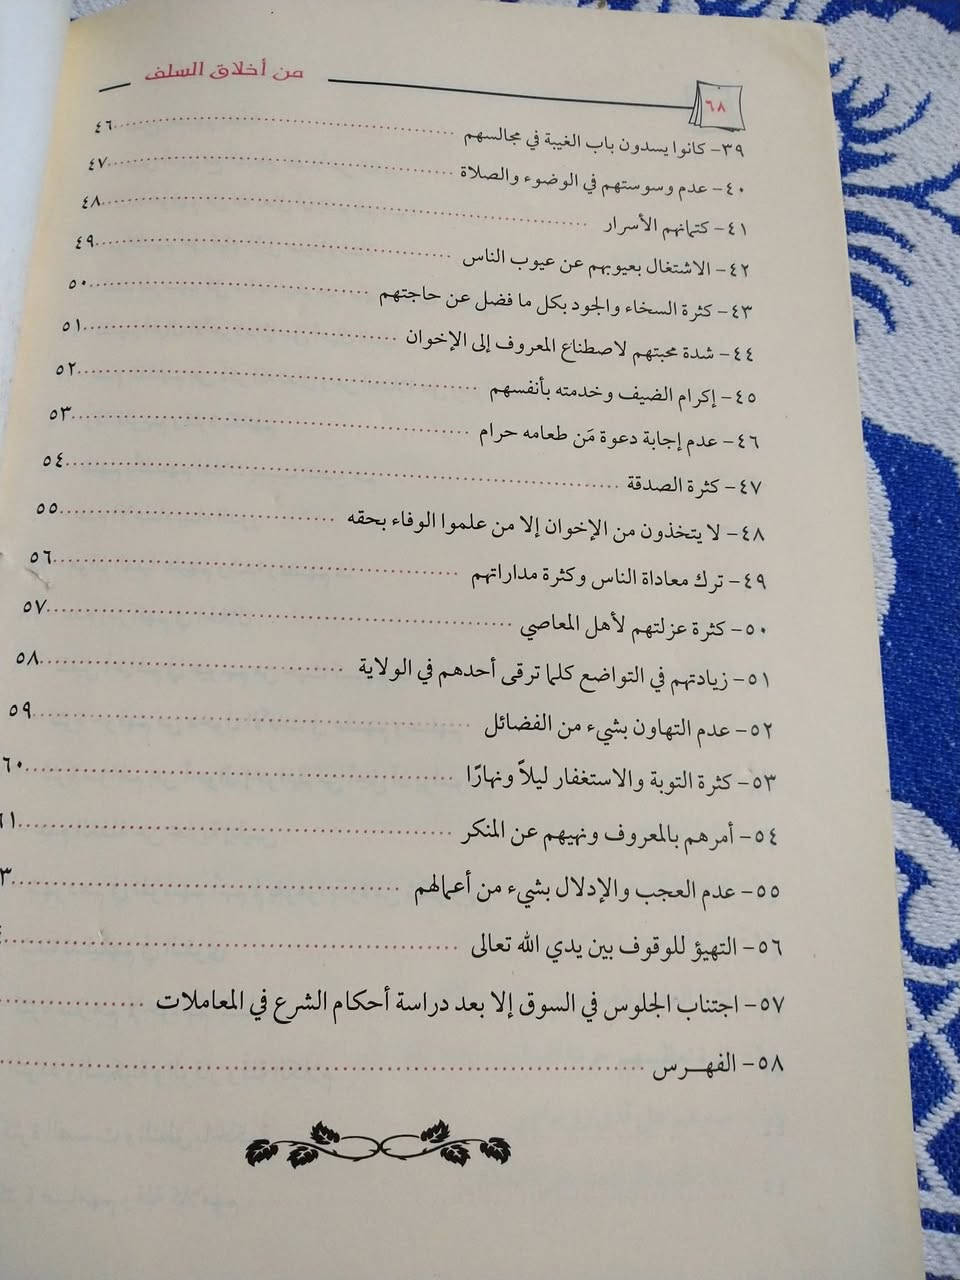 ٦٨ من أخلاق السلف
٣٩- كانوا يسدون باب الغيبة في مجالسهم ٤٦
٤٠- عدم وسوستهم في الوضوء والصلاة ٤٧
٤١- كتمانهم الأسرار ٤٨
٤٢- الاشتغال بعيوبهم عن عيوب الناس ٤٩
٤٣- كثرة السخاء والجود بكل ما فضل عن حاجتهم ٥٠
٤٤- شدة محبتهم لاصطناع المعروف إلى الإخوان ٥١
٤٥- إكرام الضيف وخدمته بأنفسهم ٥٢
٤٦- عدم إجابة دعوة مَن طعامه حرام ٥٣
٤٧- كثرة الصدقة ٥٤
٤٨- لا يتخذون من الإخوان إلا من علموا الوفاء بحقه ٥٥
٤٩- ترك معاداة الناس وكثرة مداراتهم ٥٦
٥٠- كثرة عزلتهم لأهل المعاصي ٥٧
٥١- زيادتهم في التواضع كلما ترقى أحدهم في الولاية ٥٨
٥٢- عدم التهاون بشيء من الفضائل ٥٩
٥٣- كثرة التوبة والاستغفار ليلاً ونهارًا ٦٠
٥٤- أمرهم بالمعروف ونهيهم عن المنكر ٦١
٥٥- عدم العجب والإدلال بشيء من أعمالهم ٣
٥٦- التهيؤ للوقوف بين يدي الله تعالى
٥٧- اجتناب الجلوس في السوق إلا بعد دراسة أحكام الشرع في المعاملات
٥٨- الفهـــرس